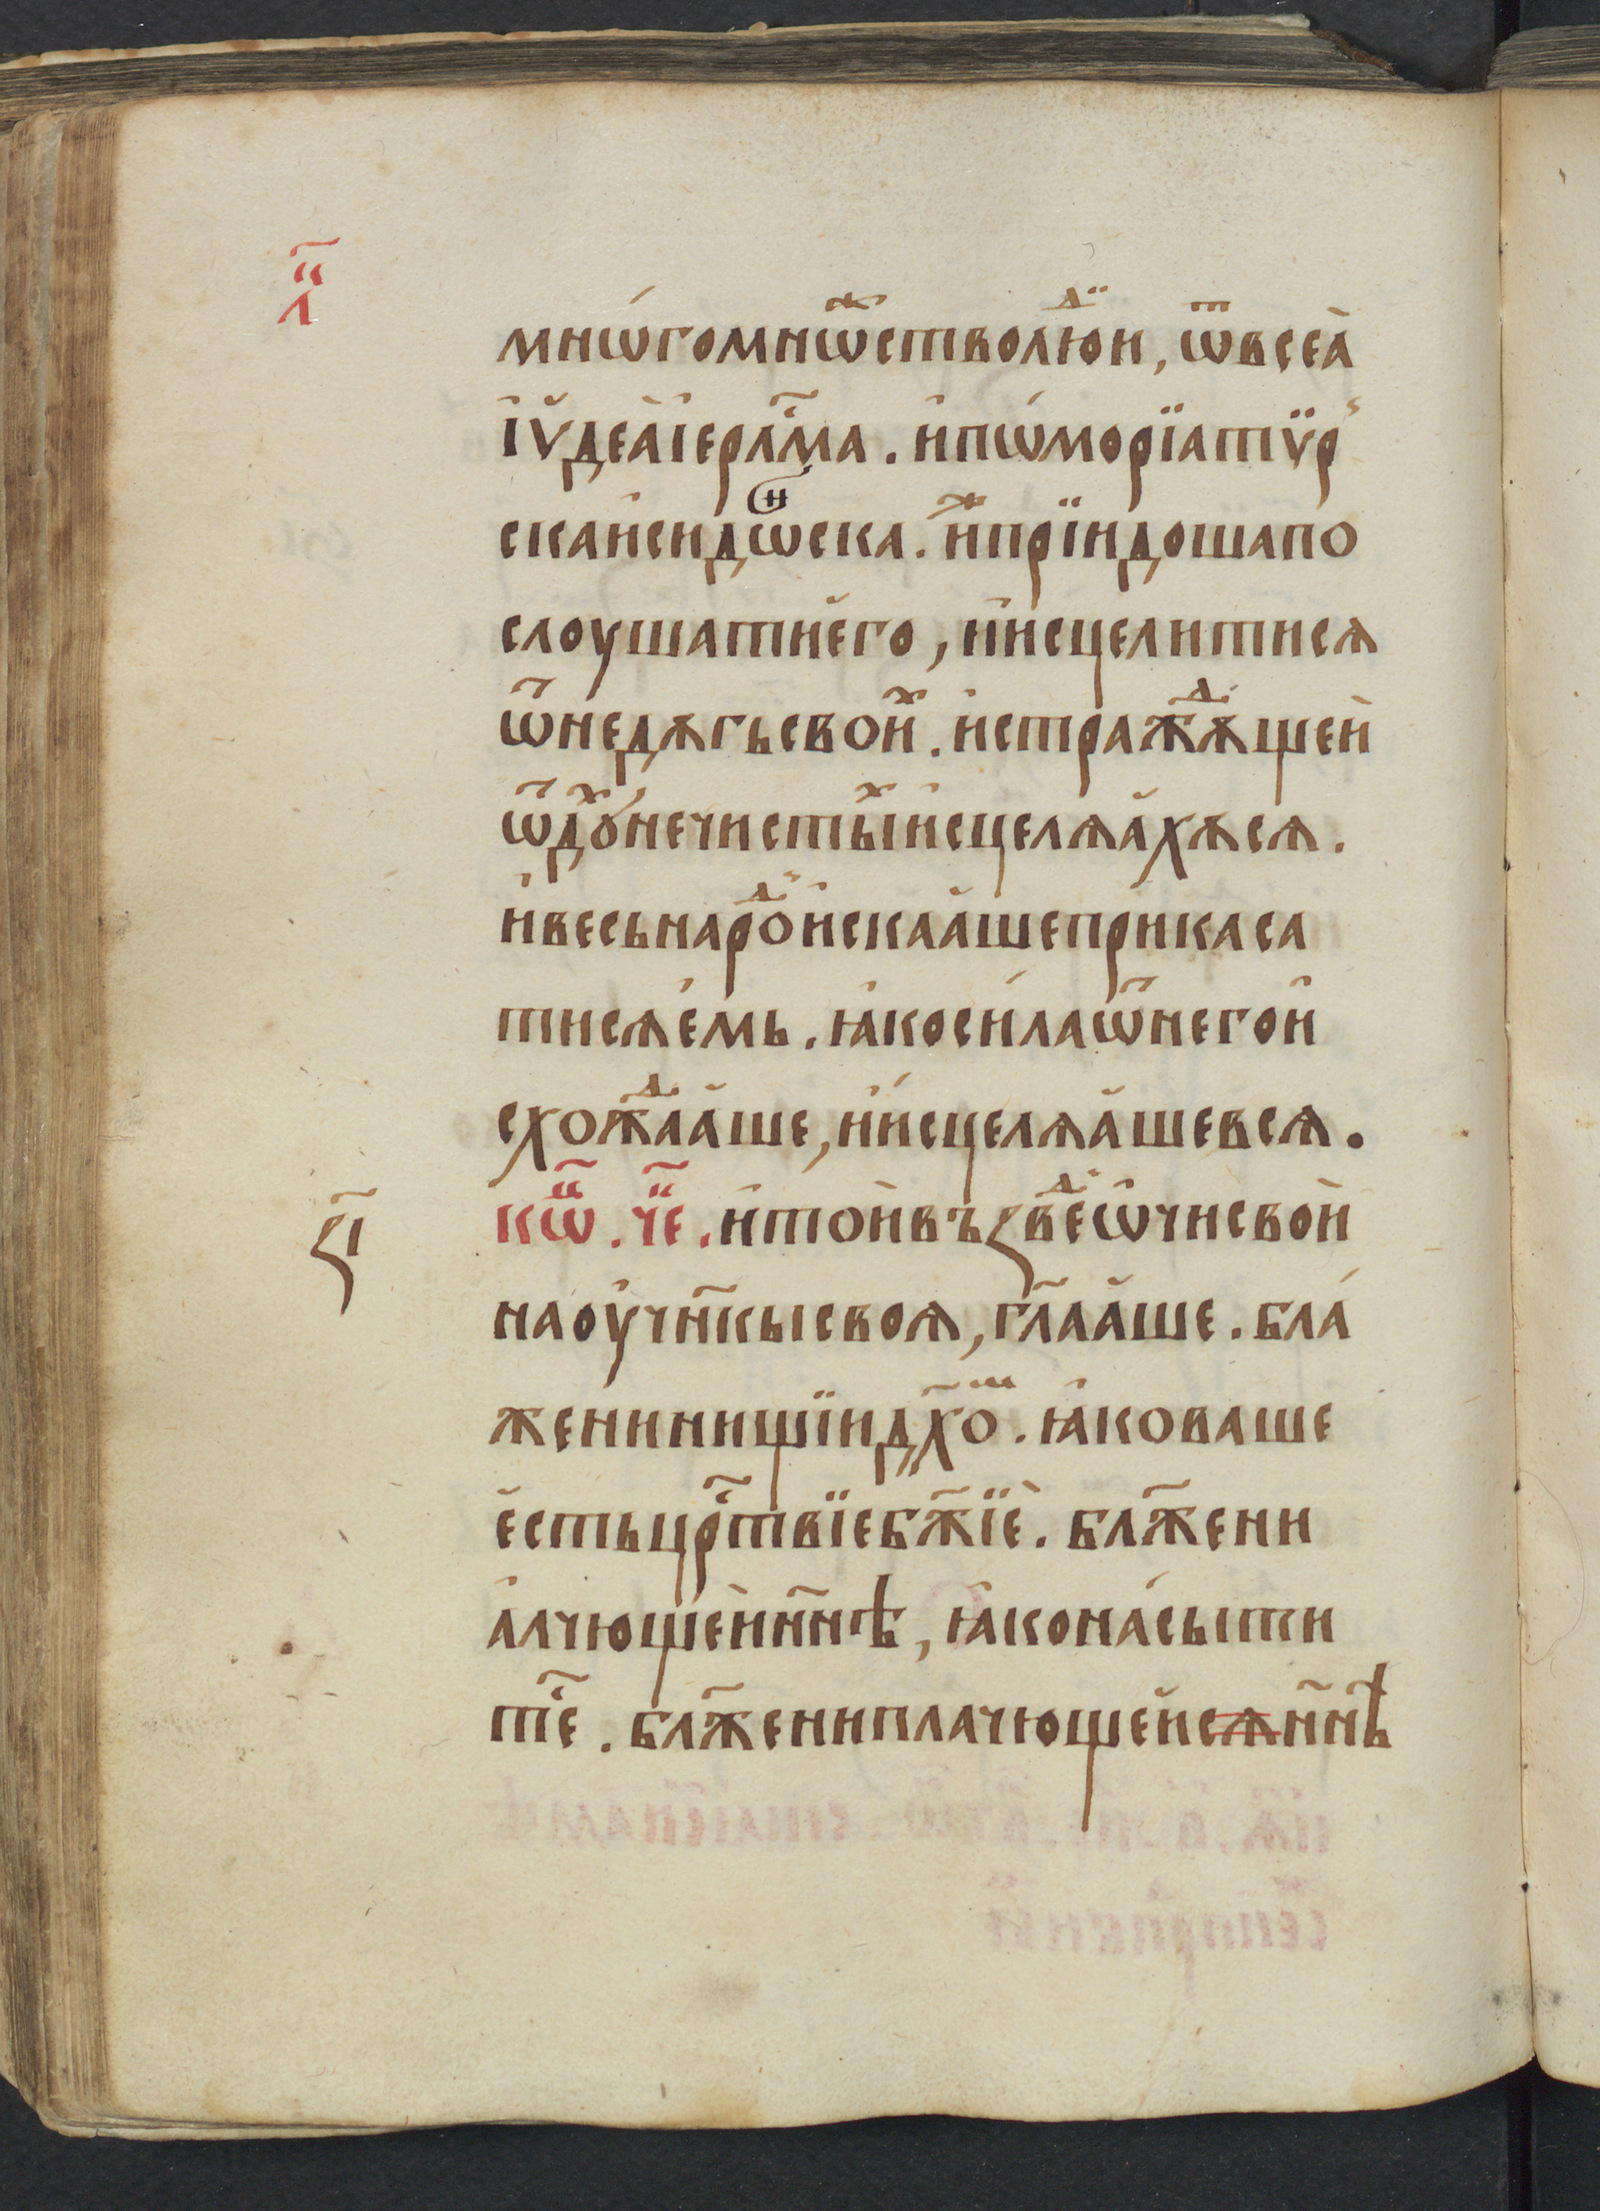 л҃
мнѡ́гомнѡⷤ҇стволюⷣ҇и, ѿвсеа̀
і҆ꙋ̆деа̀і҆ерл҃ⷭма. и҆пѡ́морїатѵ̈рⸯ
скаи҆сидѡⷩ҇ска. и҆ⷤпрїидошапо
слоушатиѐго, и҆и҆сцелитися
ѿнедѧгьсвоиⷯ. и҆стражⷣѫщеи
ѿдꙋⷯнечистыⷯи҆сцелѧа҆хѫсѧ.
и҆весьнароⷣи҆скаа҆шеприкаса
тисѧе҆мь. ꙗ҆косилаѿнегои҆
схожⷣаа҆ше, и҆и҆сцелѧа҆шевсѧ.
кѡⷰ҇. че҃. и҆тои҆въꙁвеⷣѡ҆чисвои҆
з҃і
наоу҆чн҃кысвоѧ, гл҃аа҆ше. бла́
женинищїидх҃оⷨ. ꙗ҆коваше
е҆стьцр҃ⷭтвїебж҃їе. блж҃ени
а҆лчющеи҆нн҃ѣ, ꙗ҆кона́сыти
теⷭ҇. блж҃ениплачющеи҆сѧнн҃ѣ